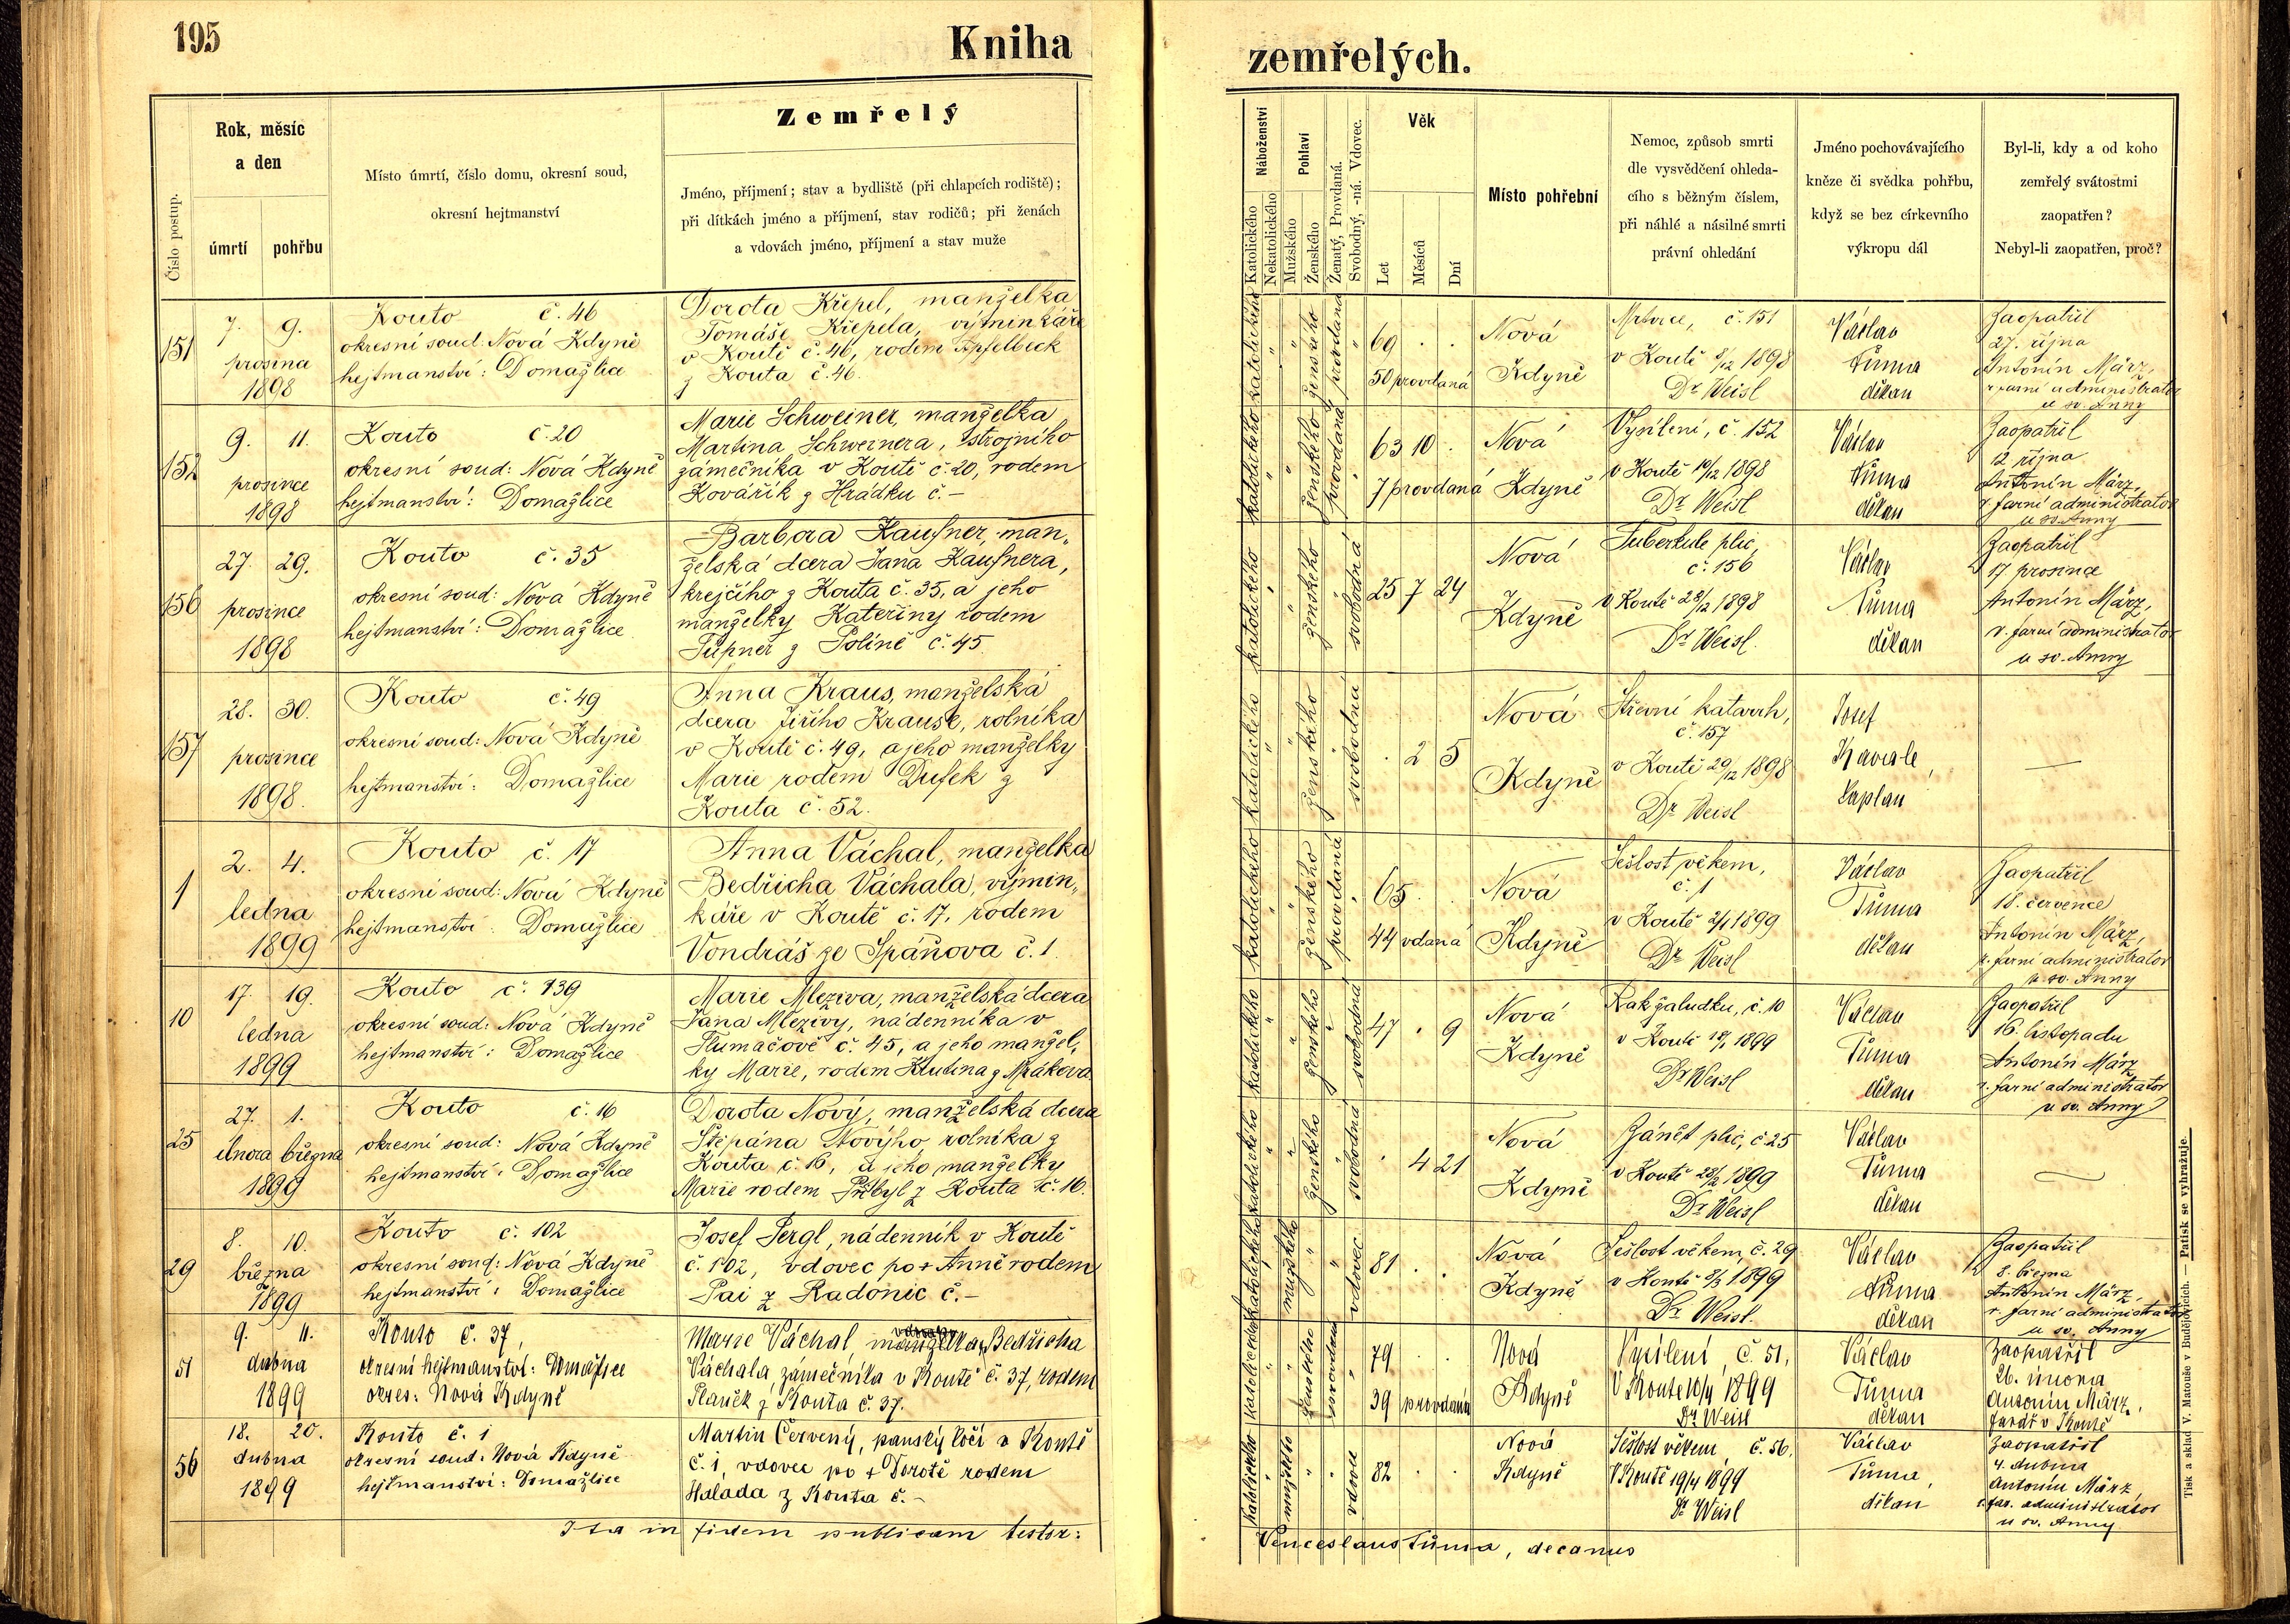 195
Kniha
zemřelých.
Číslo postup.
Rok, měsíc
a den
úmrtí
pohřbu
Místo úmrtí, číslo domu, okresní soud,
okresní hejtmanství
Zemřelý
Jméno, příjmení; stav a bydliště (při chlapcích rodiště);
při dítkách jméno a příjmení, stav rodičů; při ženách
a vdovách jméno, příjmení a stav muže
Náboženství
Katolického
Nekatolického
Pohlaví
Mužského
Ženského
Ženatý, Provdaná.
Svobodný, -ná. Vdovec.
Věk
Let
Měsíců
Dní
Místo pohřební
Nemoc, způsob smrti
dle vysvědčení ohleda-
cího s běžným číslem,
při náhlé a násilné smrti
právní ohledání
Jméno pochovávajícího
kněze či svědka pohřbu,
když se bez církevního
výkropu dál
Byl-li, kdy a od koho
zemřelý svátostmi
zaopatřen?
Nebyl-li zaopatřen, proč?
151
7. 9.
prosince
1898
Kouto č. 46
okresní soud: Nová Kdyně
hejtmanství: Domažlice
Dorota Křepel, manželka
Tomáše Křepela, výminkáře
v Koutě č. 46, rodem Apfelbeck
z Kouta č. 46.
katolického
ženského
provdaná
69 . .
50 provdaná
Nová
Kdyně
Mrtvice, č. 151
v Koutě 8/12 1898
Dr Weisl
Václav
Tůma
děkan
Zaopatřil
27. října
Antonín März,
r. farní administrator
u sv. Anny
152
9. 11.
prosince
1898
Kouto č. 20
okresní soud: Nová Kdyně
hejtmanství: Domažlice
Marie Schweiner, manželka
Martina Schweinera, strojního
zámečníka v Koutě č. 20, rodem
Kovářík z Hrádku č. –
katolického
ženského
provdaná
63 10 .
7 provdaná
Nová
Kdyně
Vysílení, č. 152
v Koutě 10/12 1898
Dr Weisl
Václav
Tůma
děkan
Zaopatřil
12 října
Antonín März,
r. farní administrator
u sv. Anny
156
27. 29.
prosince
1898
Kouto č. 35
okresní soud: Nová Kdyně
hejtmanství: Domažlice
Barbora Kaufner, man„
želská dcera Jana Kaufnera,
krejčího z Kouta č. 35, a jeho
manželky Kateřiny rodem
z Polině č. 45.
katolického
ženského
svobodná
25 7 24
Nová
Kdyně
Tuberkule plic,
č. 156
v Koutě 28/12 1898
Dr Weisl.
Václav
Tůma
děkan
Zaopatřil
17 prosince
Antonín März,
r. farní administrator
u sv. Anny
157
28. 30.
prosince
1898.
Kouto č. 49
okresní soud: Nová Kdyně
hejtmanství: Domažlice
Anna Kraus, manželská
dcera Jiřího Krause, rolníka
v Koutě č. 49, a jeho manželky
Marie rodem Dufek z
Kouta č. 52.
katolického
ženského
svobodná
. 2 5
Nová
Kdyně
Střevní katarrh,
č. 157
v Koutě 29/12 1898
Dr Weisl
Josef
kaplan
—
1
2. 4.
ledna
1899
Kouto č. 17
okresní soud: Nová Kdyně
hejtmanství: Domažlice
Anna Váchal, manželka
Bedřicha Váchala, výmin„
káře v Koutě č. 17, rodem
Vondráš ze Spáňova č. 1.
katolického
ženského
provdaná
65 . .
44 vdaná
Nová
Kdyně
Sešlost věkem,
č. 1
v Koutě 2/1 1899
Dr Weisl
Václav
Tůma
děkan
Zaopatřil
18. července
Antonín März,
r. farní administrator
u sv. Anny
10
17. 19.
ledna
1899
Kouto č. 139
okresní soud: Nová Kdyně
hejtmanství: Domažlice
Marie Mleziva, manželská dcera
Jana Mlezivy, nádenníka v
Tlumačově č. 45, a jeho manžel„
ky Marie, rodem Klutina z Mrákova
katolického
ženského
svobodná
47 . 9
Nová
Kdyně
Rak žaludku, č. 10
v Koutě 18/1 1899
Dr Weisl
Václav
Tůma
děkan
Zaopatřil
16. listopadu
Antonín März
r. farní administrator
u sv. Anny
25
27. 1.
února března
1899
Kouto č. 16
okresní soud: Nová Kdyně
hejtmanství: Domažlice
Dorota Nový, manželská dcera
Štěpána Nového rolníka z
Kouta č. 16, a jeho manželky
Marie rodem Přibyl z Kouta č. 16.
katolického
ženského
svobodná
. 4 21
Nová
Kdyně
Zánět plic, č 25
v Koutě 28/2 1899
Dr Weisl
Václav
Tůma
děkan
—
29
8. 10.
března
1899
Kouto č. 102
okresní soud: Nová Kdyně
hejtmanství: Domažlice
Josef Pergl, nádenník v Koutě
č. 102, vdovec po + Anně rodem
Pai z Radonic č. –
katolického
mužského
vdovec
81 . .
Nová
Kdyně
Sešlost věkem, č. 29
v Koutě 8/3 1899
Dr Weisl.
Václav
Tůma
děkan
Zaopatřil
8. března
Antonín März,
r. farní administrator
u sv. Anny
51
9. 11.
dubna
1899
Kouto č. 37,
okresní hejtmanství: Domažlice
okres: Nová Kdyně
Marie Váchal, manželka Bedřicha
Váchala zámečníka v Koutě č. 37, rodem
z Kouta č. 37.
katolického
ženského
provdaná
79 . .
39 provdaná
Nová
Kdyně
Vysílení, č. 51,
V Koutě 10/4 1899
Dr Weisl
Václav
Tůma
děkan
Zaopatřil
26. února
Antonín März,
farář v Koutě
56
18. 20.
dubna
1899
Kouto č. 1
okresní soud: Nová Kdyně
hejtmanství: Domažlice
Martin Červený, panský kočí v Koutě
č. 1, vdovec po + Dorotě rodem
Halada z Kouta č. –
katolického
mužského
82 . .
Nová
Kdyně
Sešlost věkem, č. 56.
V Koutě 19/4 1899
Dr Weisl
Václav
Tůma,
děkan
Zaopatřil
4. dubna
Antonín März,
r. far. administrátor
u sv. Anny
Ita in fidem publicam testor:
Venceslaus Tůma, decanus
Tisk a sklad V. Matouše v Budějovicích. — Patisk se vyhražuje.